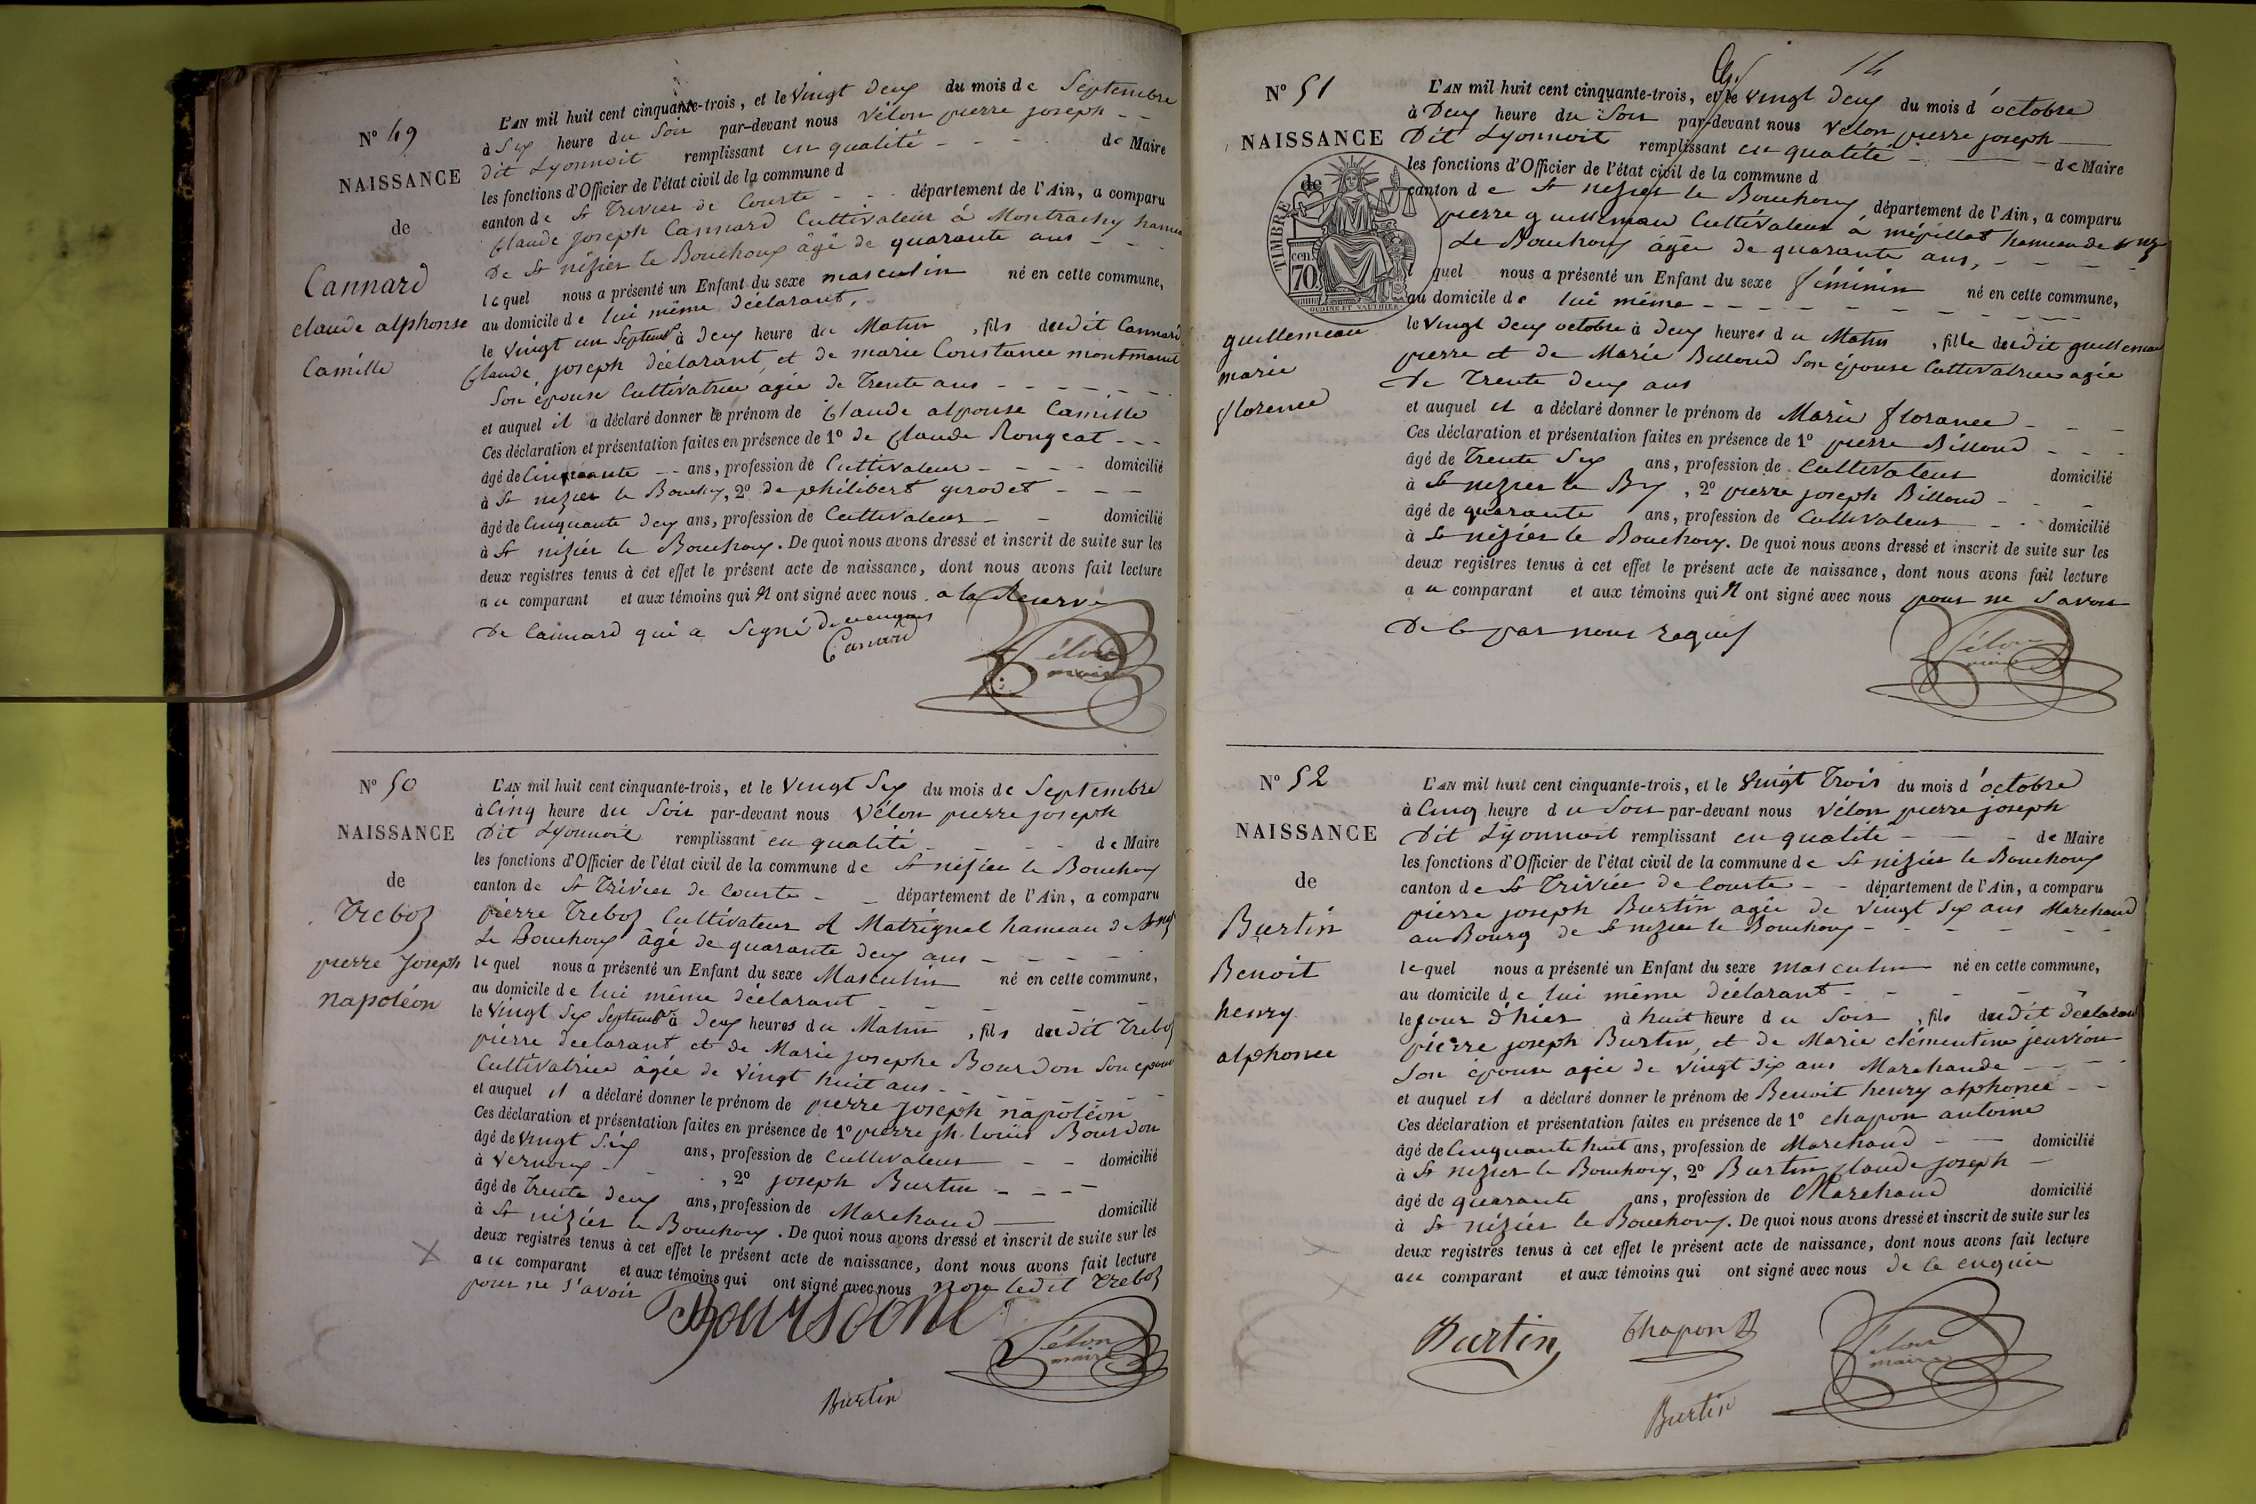 N° 49
NAISSANCE
de
Cannard
claude alphonse
Camille
L'AN mil huit cent cinquante-trois, et le vingt deux du mois de Septembre
à Six heure du Soir par-devant nous Vélon pierre joseph
dit Lyonnoit remplissant en qualité de Maire
les fonctions d'Officier de l'état civil de la commune d
canton de St Trivier de Courte département de l'Ain, a comparu
Claude joseph Cannard Cultivateur à Montrachy hameau
De St nézier le Bouchoux âgé de quarante ans
lequel nous a présenté un Enfant du sexe masculin né en cette commune,
au domicile de lui même déclarant,
le vingt un Septemb à deux heure du Matin, fils dudit Cannard
Claude joseph déclarant et de marie Constance
Son épouse Cultivatrice agée de Trente ans
et auquel il a déclaré donner le prénom de Claude alponse Camille
Ces déclaration et présentation faites en présence de 1° de Claude Rongeat
âgé de Cinquante ans, profession de Cultivateur domicilié
à St nezier le Bouchoux, 2° de philibert gerodet
âgé de Cinquante deux ans, profession de Cultivateur domicilié
à St nizier le Bouchoux. De quoi nous avons dressé et inscrit de suite sur les
deux registres tenus à cet effet le présent acte de naissance, dont nous avons fait lecture
au comparant et aux témoins qui n ont signé avec nous a la Reserve
De Cannard qui a Signé
Canard
Vélon
maire
N° 50
NAISSANCE
de
Treboz
pierre Joseph
napoléon
L'AN mil huit cent cinquante-trois, et le vingt Six du mois de Septembre
à Cinq heure du Soir par-devant nous Vélon pierre joseph
Dit Lyonnoit remplissant en qualité de Maire
les fonctions d'Officier de l'état civil de la commune de St nézier le Bouchoux
canton de St Trivier de Courte département de l'Ain, a comparu
pierre Treboz Cultivateur à Matrignat hameau de St nez
Le Bouchoux âgé de quarante deux ans
lequel nous a présenté un Enfant du sexe Masculin né en cette commune,
au domicile de lui même déclarant
le vingt Six Septembre à deux heures du Matin, fils dudit Treboz
pierre declarant et de Marie josephe Bourdon Son epouse
Cultivatrice âgée de vingt huit ans
et auquel il a déclaré donner le prénom de pierre joseph napoléon
Ces déclaration et présentation faites en présence de 1° pierre jh. louis Bourdon
âgé de vingt Six ans, profession de Cultivateur domicilié
à Vernoux, 2° joseph Burtin
âgé de Trente deux ans, profession de Marchand domicilié
à St nézier le Bouchoux. De quoi nous avons dressé et inscrit de suite sur les
deux registres tenus à cet effet le présent acte de naissance, dont nous avons fait lecture
au comparant et aux témoins qui ont signé avec nous non ledit Treboz
pour ne s'avoir
Bourdon
Vélon
maire
Burtin
14
N° 51
NAISSANCE
de
TIMBRE
cen.
70
OUDINÉ ET VAUTHIER
guillemeau
marie
florence
L'AN mil huit cent cinquante-trois, et le vingt deux du mois d'octobre
à Deux heure du Soir par-devant nous Vélon pierre joseph
Dit Lyonnoit remplissant en qualité de Maire
les fonctions d'Officier de l'état civil de la commune d
canton de St nezier le Bouchoux département de l'Ain, a comparu
pierre guillemeau Cultivateur à mépillat hameau de St nez
Le Bouchoux agée de quarante ans,
lequel nous a présenté un Enfant du sexe féminin né en cette commune,
au domicile de lui même
le vingt deux octobre à deux heures du Matin, fille dudit guillemeau
pierre et de Marie Billoud Son épouse Cultivatrice agée
De Trente deux ans
et auquel il a déclaré donner le prénom de Marie florance
Ces déclaration et présentation faites en présence de 1° pierre Billoud
âgé de Trente Six ans, profession de Cultivateur domicilié
à St nezier le Bx, 2° pierre joseph Billoud
âgé de quarante ans, profession de Cultivateur domicilié
à St nézier le Bouchoux. De quoi nous avons dressé et inscrit de suite sur les
deux registres tenus à cet effet le présent acte de naissance, dont nous avons fait lecture
au comparant et aux témoins qui n ont signé avec nous pour ne Savoir
De ce par nous requis
Vélon
maire
N° 52
NAISSANCE
de
Burtin
Benoit
henry
alphonce
L'AN mil huit cent cinquante-trois, et le vingt Trois du mois d'octobre
à Cinq heure du Soir par-devant nous Vélon pierre joseph
Dit Lyonnoit remplissant en qualité de Maire
les fonctions d'Officier de l'état civil de la commune de St nizier le Bouchoux
canton de St Trivier de Courte département de l'Ain, a comparu
pierre joseph Burtin agée de vingt Six ans Marchand
au Bourg de St nezier le Bouchoux
lequel nous a présenté un Enfant du sexe masculin né en cette commune,
au domicile de lui même déclarant
le jour d'hier à huit heure du Soir, fils dudit déclarant
pierre joseph Burtin, et de Marie clémentine jeuvion
Son épouse agée de vingt Six ans Marchande
et auquel il a déclaré donner le prénom de Benoit henry alphonce
Ces déclaration et présentation faites en présence de 1° chapon antoine
âgé de Cinquante huit ans, profession de Marchand domicilié
à St nezier le Bouchoux, 2° Burtin Claude joseph
âgé de quarante ans, profession de Marchand domicilié
à St nézier le Bouchoux. De quoi nous avons dressé et inscrit de suite sur les
deux registres tenus à cet effet le présent acte de naissance, dont nous avons fait lecture
au comparant et aux témoins qui ont signé avec nous de ce enquis
Burtin
Chapon
Vélon
maire
Burtin